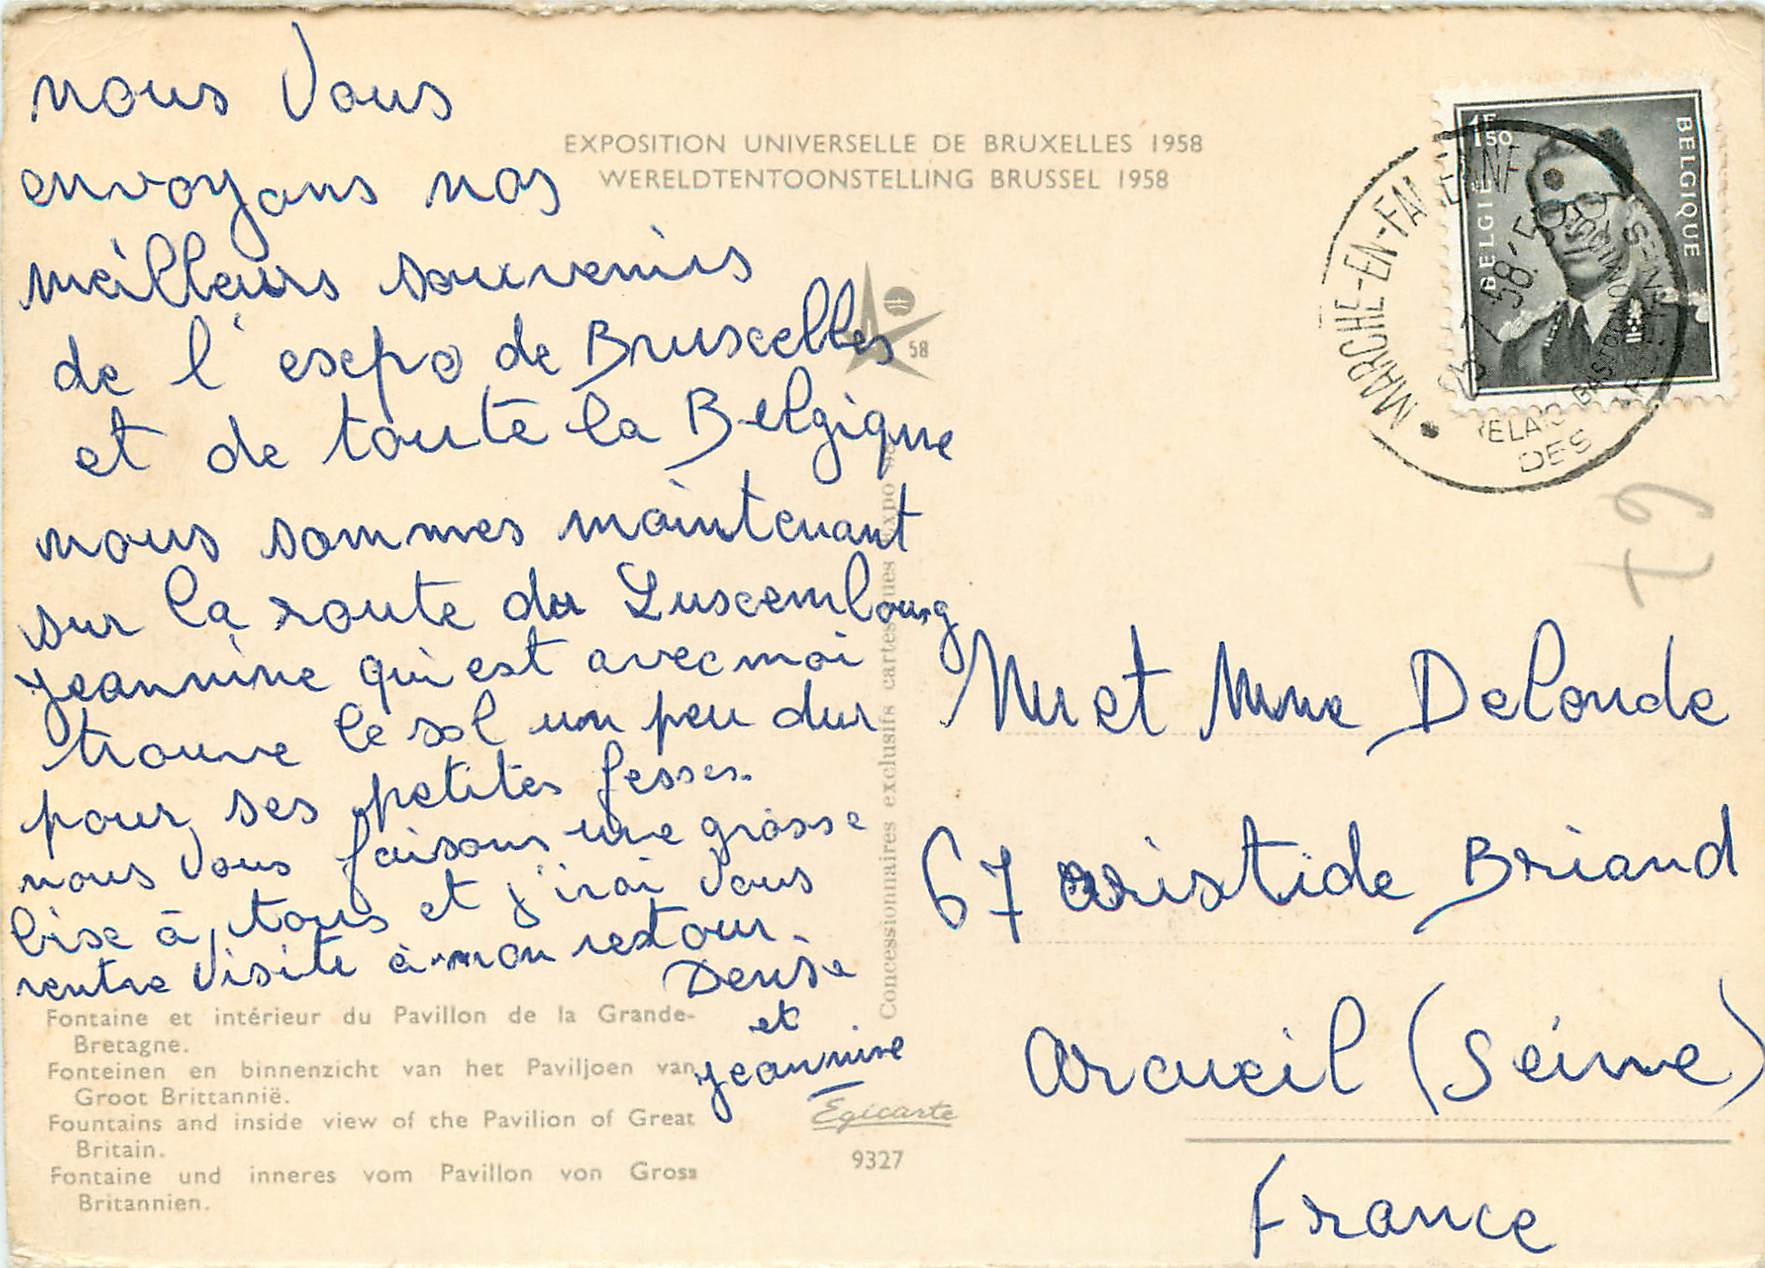 nous vous
envoyons nos
meilleurs souvenirs
de l'expo de Bruxelles
et de toute la Belgique
nous sommes maintenant
sur la route du Luxembourg
jeannine qui est avec moi
trouve le sol un peu dur
pour ses petites fesses.
nous vous faisons une grosse
bise à tous et j'irai vous
rentre visite à mon retour.
Denise
et
jeannine
EXPOSITION UNIVERSELLE DE BRUXELLES 1958
WERELDTENTOONSTELLING BRUSSEL 1958
58
Concessionnaires exclusifs cartes vues Expo
Fontaine et intérieur du Pavillon de la Grande-
Bretagne.
Fonteinen en binnenzicht van het Paviljoen van
Groot Brittannië.
Fountains and inside view of the Pavilion of Great
Britain.
Fontaine und inneres vom Pavillon von Gross
Britannien.
Egicarte
9327
1F50
BELGIE
BELGIQUE
MARCHE-EN-FAMENNE
58
RELAIS GASTRONOMIQUE
DES
T9
Mr et Mme Delonde
67 aristide Briand
Arcueil (Seine)
France